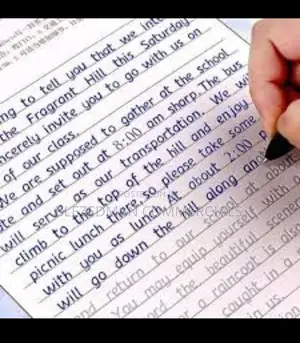 ng to tell you that we inte
the Fragrant Hill this Saturday
ncerely invite you to go with us on
of our class.
We are supposed to gather at the school
te and set out at 8:00 am sharp. The bus
will serve as our transportation. We wi
climb to the top of the hill and enjoy
picnic lunch there, so please take some
with you as lunch. At about 2:00 p
will go down the hill along ano
and return to our school at about
You may equip yourself with a
the beautiful scene
or a raincoat is also
caught in a
in us.